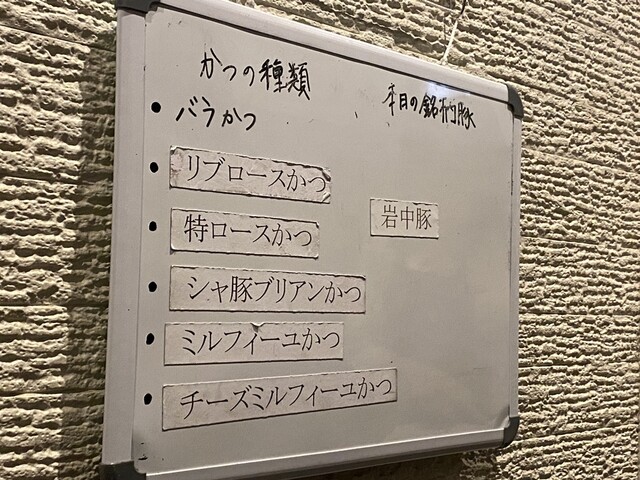 かつの種類
・バラかつ
・リブロースかつ
・特ロースかつ
・シャ豚ブリアンかつ
・ミルフィーユかつ
・チーズミルフィーユかつ
本日の銘柄豚
岩中豚